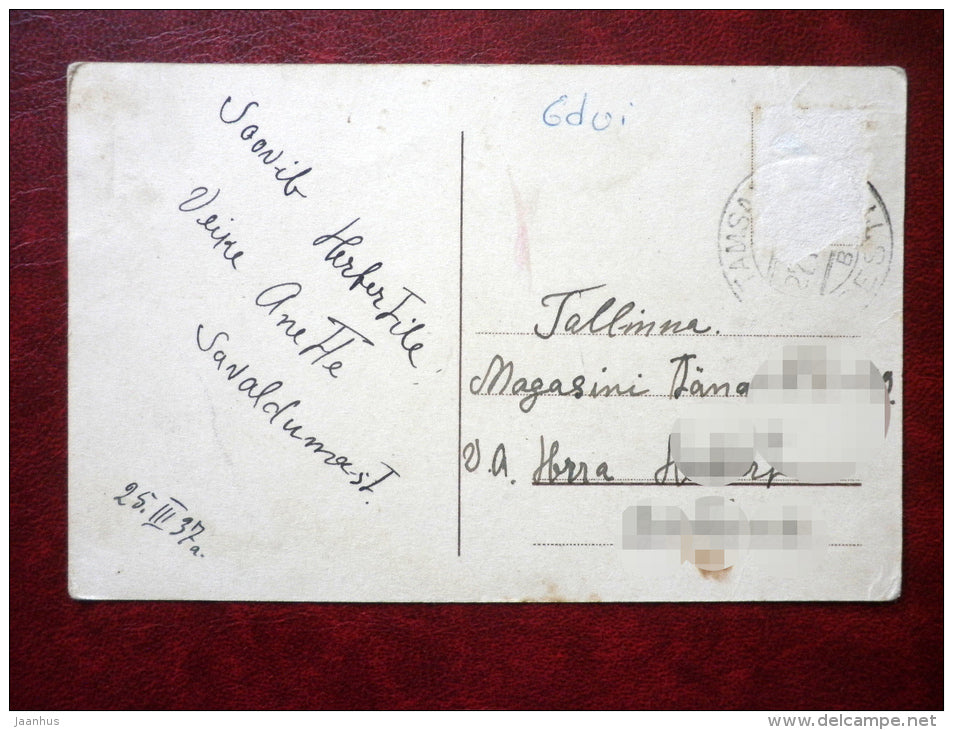 Soovib
Herbertile
Veike
AneTTe
Savaldumast.
25.III 37a.
6doi
TAMSA
EESTI
B
Tallinna.
Magasini
V.A. Hrra
Jaanhus
www.delcampe.net